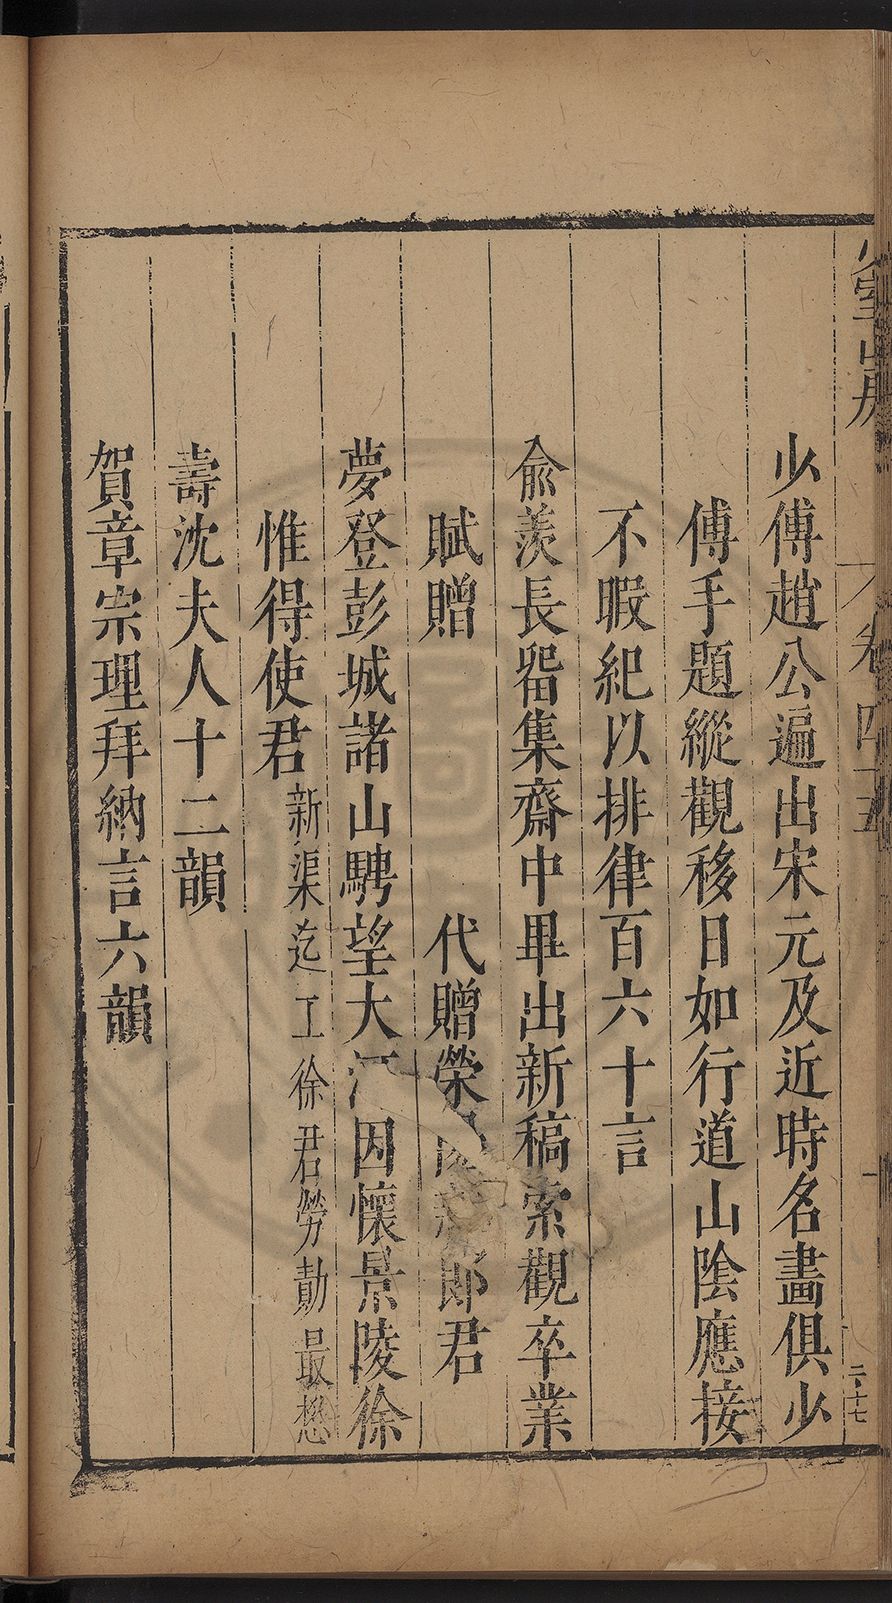 少傅趙公遍出宋元及近時名畵俱少
傅手題縱觀移日如行道山陰應接
不暇紀以排律百六十言
兪羨長畱集齋中畢出新稿索觀卒業
賦贈　代贈榮　郞君
夢登彭城諸山騁望大河因懷景陵徐
惟得使君新渠迄工徐君勞勣最懋
壽沈夫人十二韻
賀章宗理拜納言六韻
卷四十五
二六七